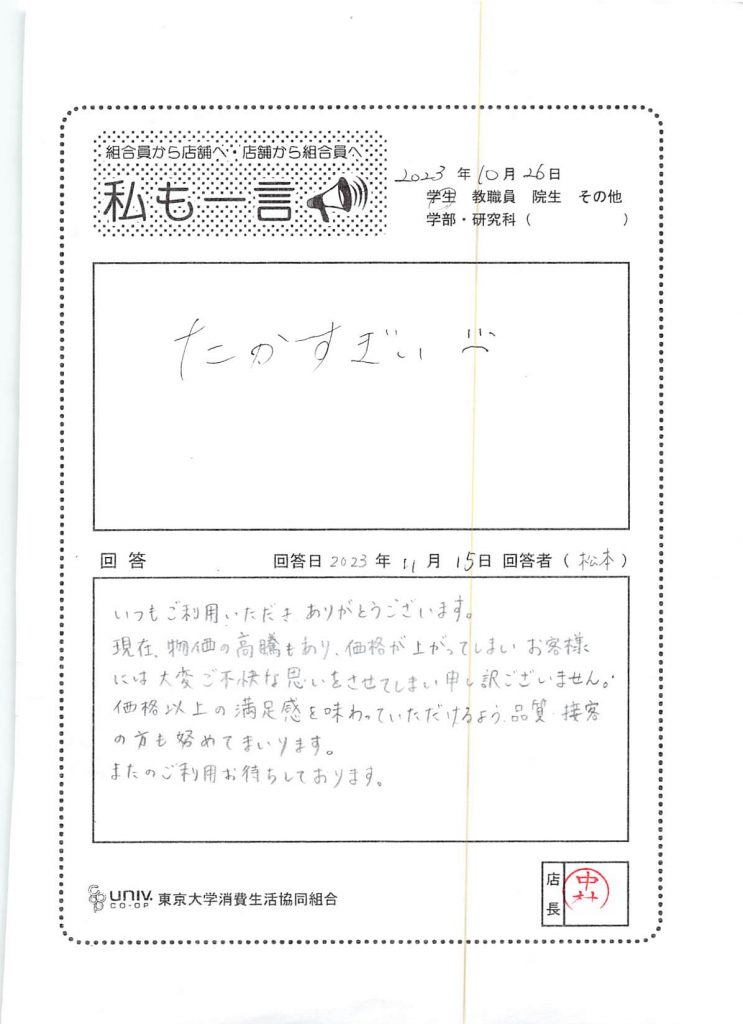 組合員から店舗へ・店舗から組合員へ
私も一言
2023 年 10月 26日
学生 教職員 院生 その他
学部・研究科 ( )
たかすぎい
回答 回答日 2023 年 11 月 15日 回答者 ( 松本 )
いつもご利用いただき ありがとうございます。
現在、物価の高騰もあり、価格が上がってしまい お客様
には 大変ご不快な思いをさせてしまい 申し訳ございません。
価格以上の満足感を味わっていただけるよう、品質・接客
の方も努めてまいります。
またのご利用お待ちしております。
coop UNIV. CO-OP 東京大学消費生活協同組合
店長 中村